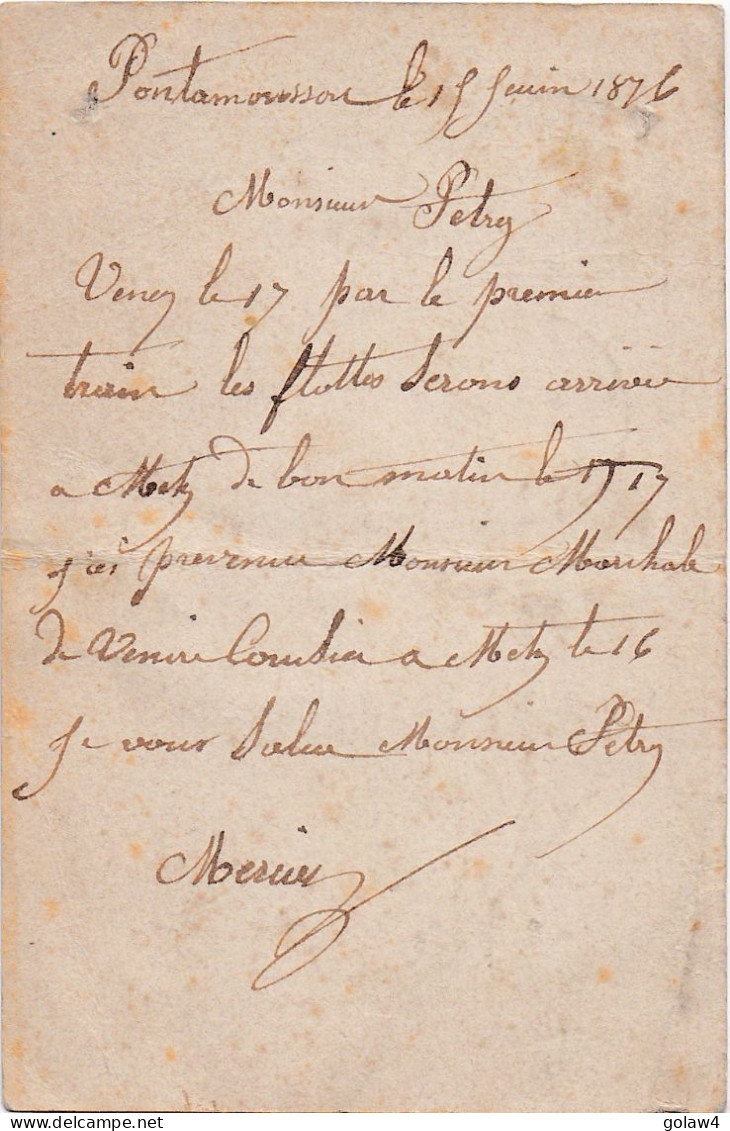 Pontamousson le 15 Juin 1876
Monsieur Petry
Venez le 17 par le premier
train les flottes serons arrivée
a Metz de bon matin le 17
j'ai prevenu Monsieur Marchale
de venir a Metz le 16
Je vous salue Monsieur Petry
Mercier
delcampe.net
golaw4